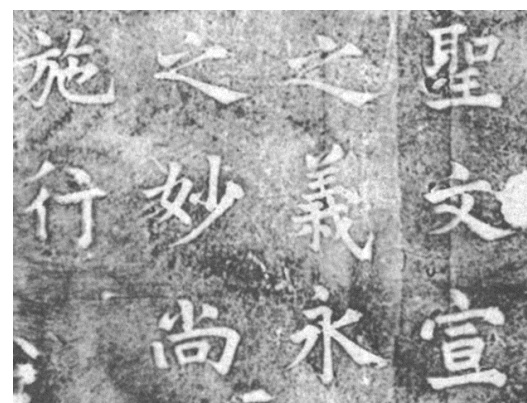 聖文宣
之義永
之妙尚
施行